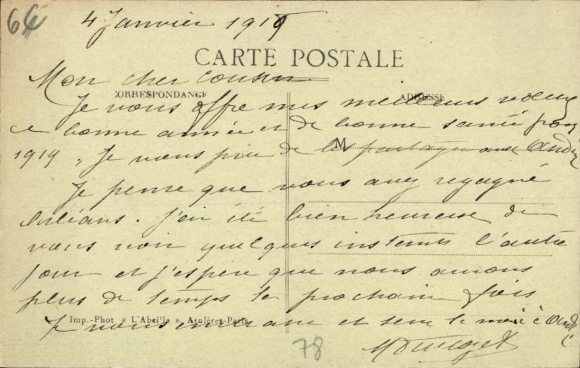 64
4 Janvier 1919
CARTE POSTALE
Mon cher cousin
CORRESPONDANCE
ADRESSE
Je vous offre mes meilleurs voeux
de bonne année et de bonne santé pour
M
1919. Je vous prie de les partager avec André
Je pense que vous avez regagné
Orléans. J'ai été bien heureuse de
vous voir quelques instants l'autre
jour et j'espère que nous aurons
plus de temps la prochaine fois
Imp.-Phot « L'Abeille » Asnières-Paris
Je vous embrasse et
78